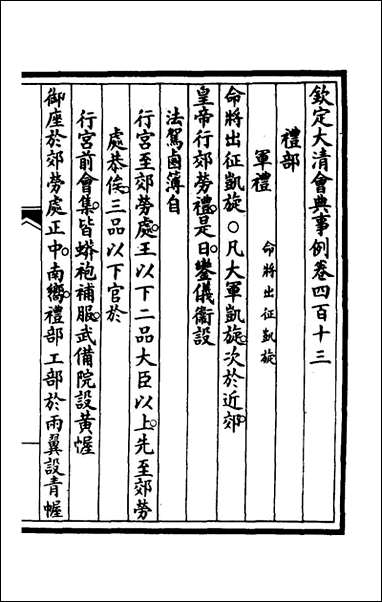 欽定大清會典事例卷四百十三
禮部
軍禮 命將出征凱旋
命將出征凱旋〇凡大軍凱旋。次於近郊。
皇帝行郊勞禮。是日。鑾儀衞設
法駕鹵簿自
行宮至郊勞處。王以下二品大臣以上。先至郊勞
處恭俟。三品以下官於
行宮前會集。皆蟒袍補服。武備院設黃幄
御座於郊勞處正中。南嚮。禮部工部於兩翼設青幄